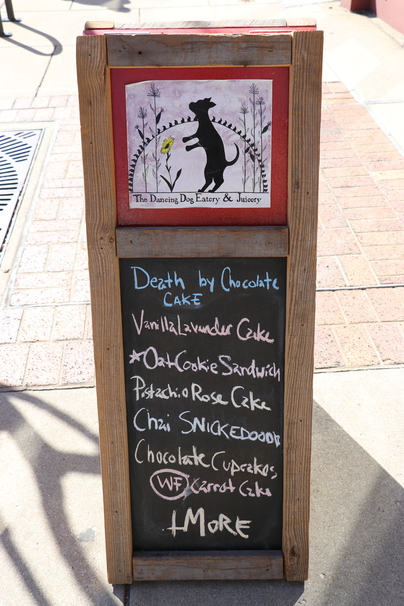 The Dancing Dog Eatery & Juicery
Death by Chocolate
CAKE
Vanilla Lavender Cake
*Oat Cookie Sandwich
Pistachio Rose Cake
Chai SNICKEDOODLE
Chocolate Cupcakes
WF Carrot Cake
+MORE